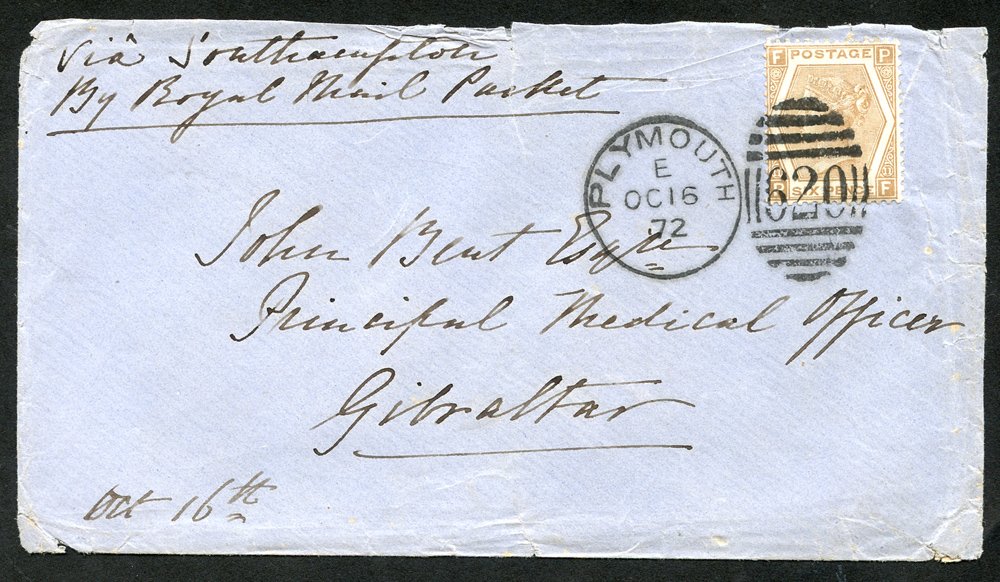 Viâ Southampton
By Royal Mail Packet
F POSTAGE P
11
P SIX PENCE F
620
PLYMOUTH
E
OC 16
72
John Bent Esqre
Principal Medical Officer
Gibraltar
Oct 16th